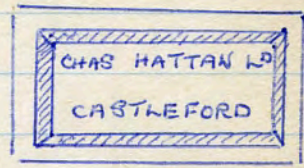 CHAS HATTAN LD
CASTLEFORD